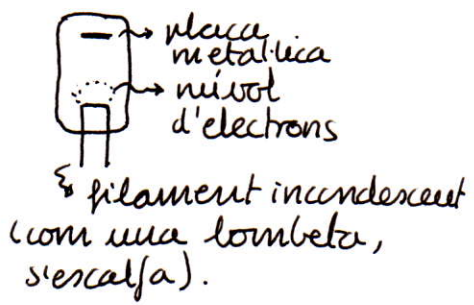 placa
metal·lica
núvol
d'electrons
filament incandescent
(com una bombeta,
s'escalfa).